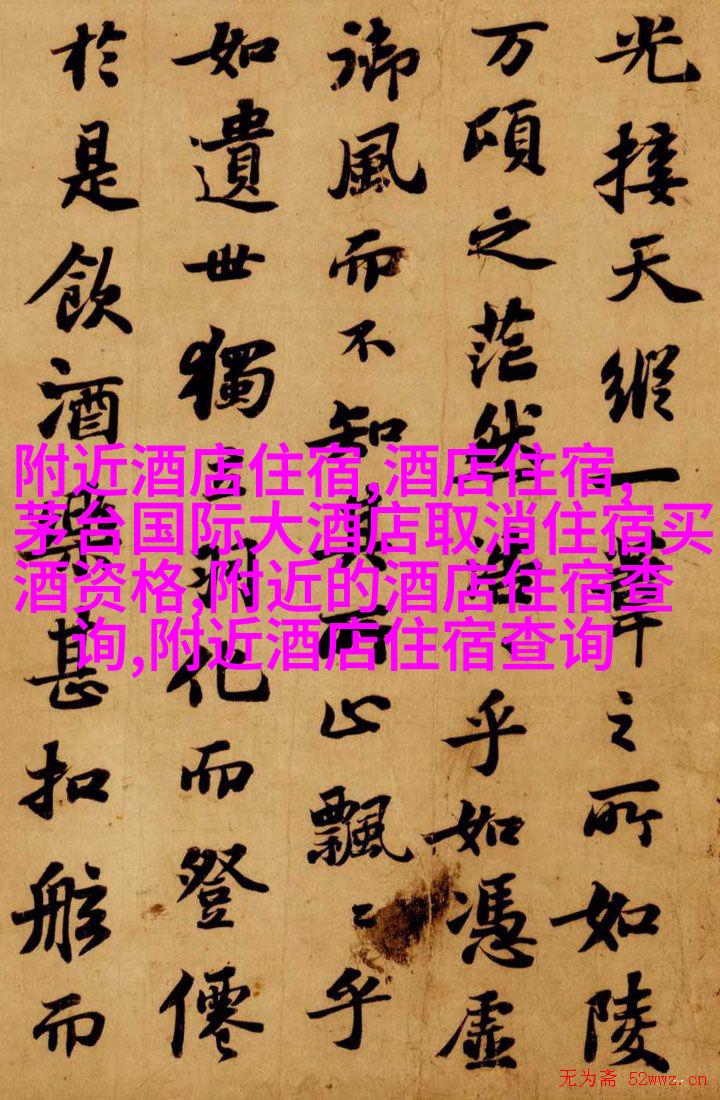 光接天縱一葦之所如陵
万頃之茫然浩〻乎如憑虛
御風而不知其所止飄〻乎
如遺世獨立羽化而登僊
於是飲酒樂甚扣舷而
附近酒店住宿,酒店住宿,
茅台国际大酒店取消住宿买
酒资格,附近的酒店住宿查
询,附近酒店住宿查询
无为斋 52wwz.cn